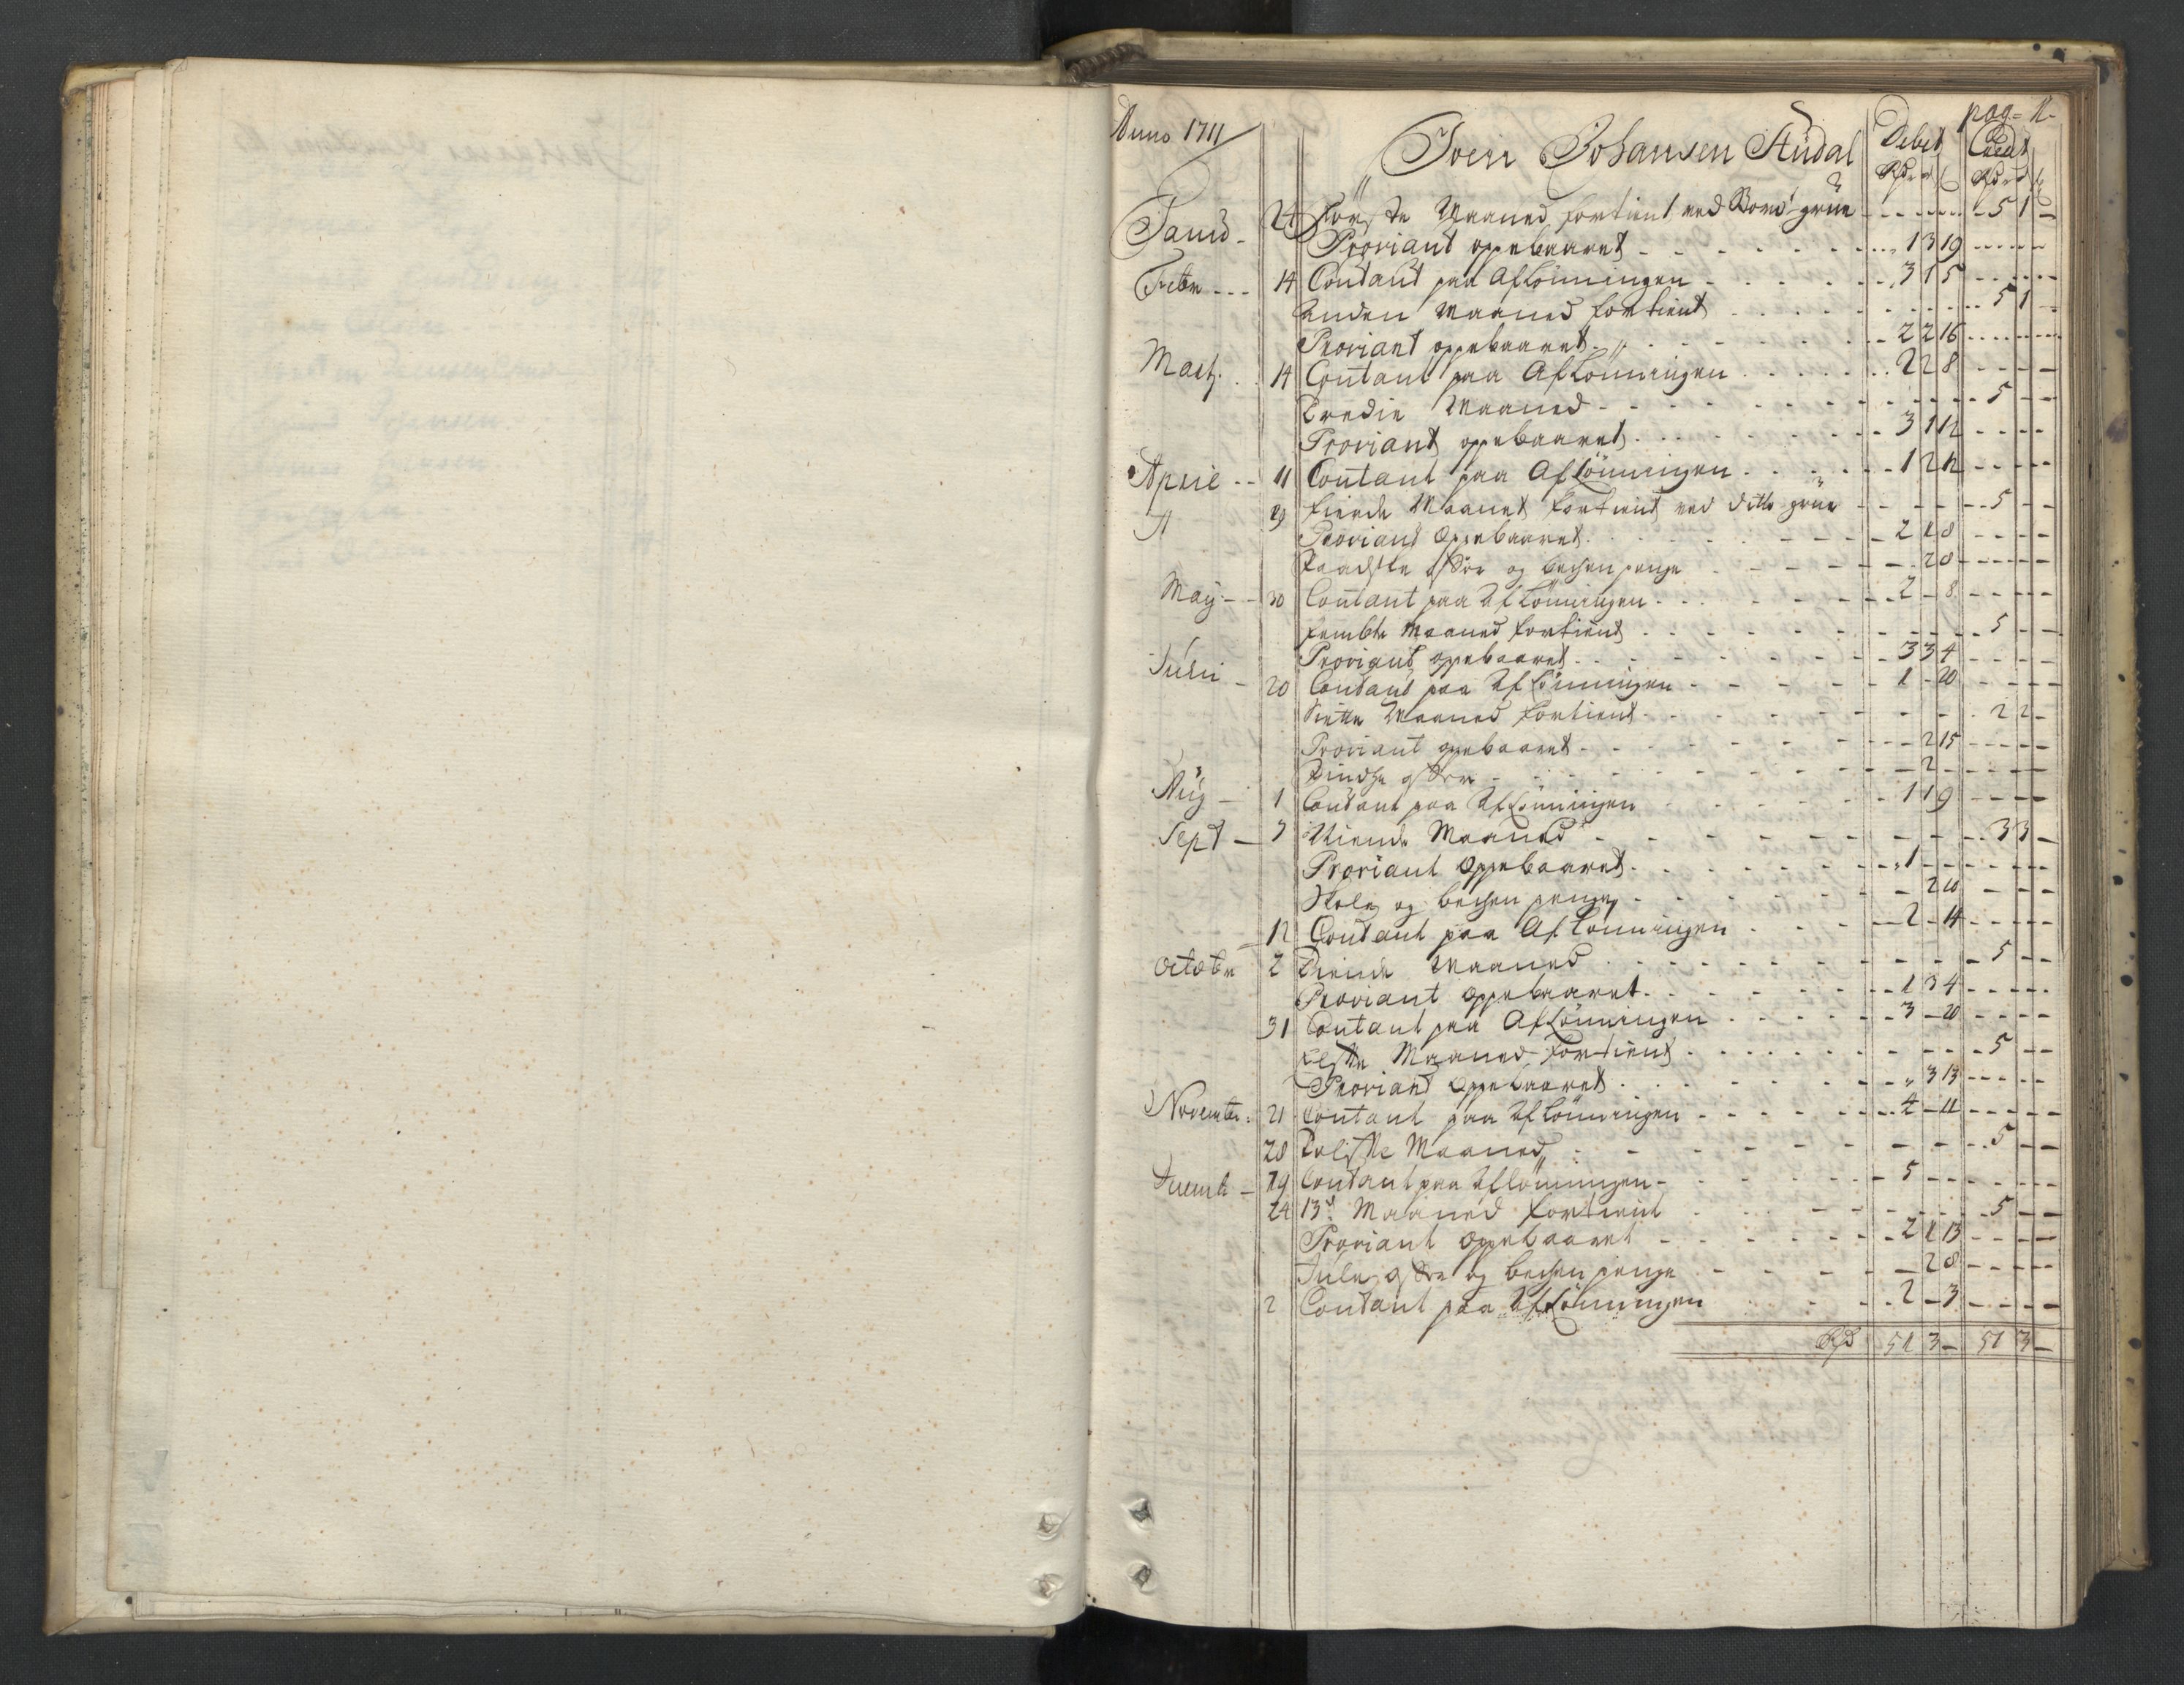 pag= 12
Anno 1711
Joen Johansen Studal Debet Credt
Rdr Rdr
Janu - 24 Förste Maaned fortient ved Bond grue - - - 5 1 -
Proviant oppebaaret - - - 1 3 19 - - -
Febr - - - 14 Contant paa Aflönningen - - - 3 1 5 - - -
Anden Maaned fortient - - - 5 1 -
Proviant oppebaaret - - - 2 2 16 - - -
Marty . . 14 Contant paa Aflönningen - - - 2 2 8 - - -
Tredie Maaned - - - 5 - -
Proviant oppebaaret - - - 3 1 12 - - -
Aprile - - 11 Contant paa Aflönningen - - - 1 2 12 - - -
29 fierde Maanet fortient ved ditto grue - - - 5 - -
Proviant Oppebaaret - - - 2 1 8 - - -
og penge - - - 2 8 - - -
May - - 30 Contant paa Aflönningen - - - 2 - 8 - - -
fembte Maaned fortient - - - 5 - -
Proviant oppebaaret - - - 3 3 4 - - -
Juli - 20 Contant paa Aflönningen - - - 1 - 20 - - -
Siette Maaned fortient - - - 2 2 -
Proviant oppebaaret - - - 2 15 - - -
- - - 2 - - -
Aug - 1 Contant paa Aflönningen - - - 1 1 9 - - -
Sept - 7 Niende Maaned - - - 3 3 -
Proviant Oppebaaret - - - 1 - - -
og penge - - - 2 - - -
12 Contant paa Aflönningen - - - 2 - 14 - - -
Octobr 2 Tiende Maaned - - - 5 - -
Proviant Oppebaaret - - - 1 3 4 - - -
31 Contant paa Aflönningen - - - 3 - 20 - - -
Elfte Maaned fortient - - - 5 - -
Proviant Oppebaaret - - - 3 13 - - -
Novembr: 21 Contant paa Aflönningen - - - 4 - 11 - - -
28 Tolfte Maaned - - - 5 - -
29 Contant paa Aflönningen - - - 5 - - -
24 13de Maaned fortient - - - 5 - -
Proviant Oppebaaret - - - 2 1 13 - - -
Jule og penge - - - 2 8 - - -
2 Contant paa Aflönningen - - - 2 - 3 - - -
Rd 51 3 - 51 3 -